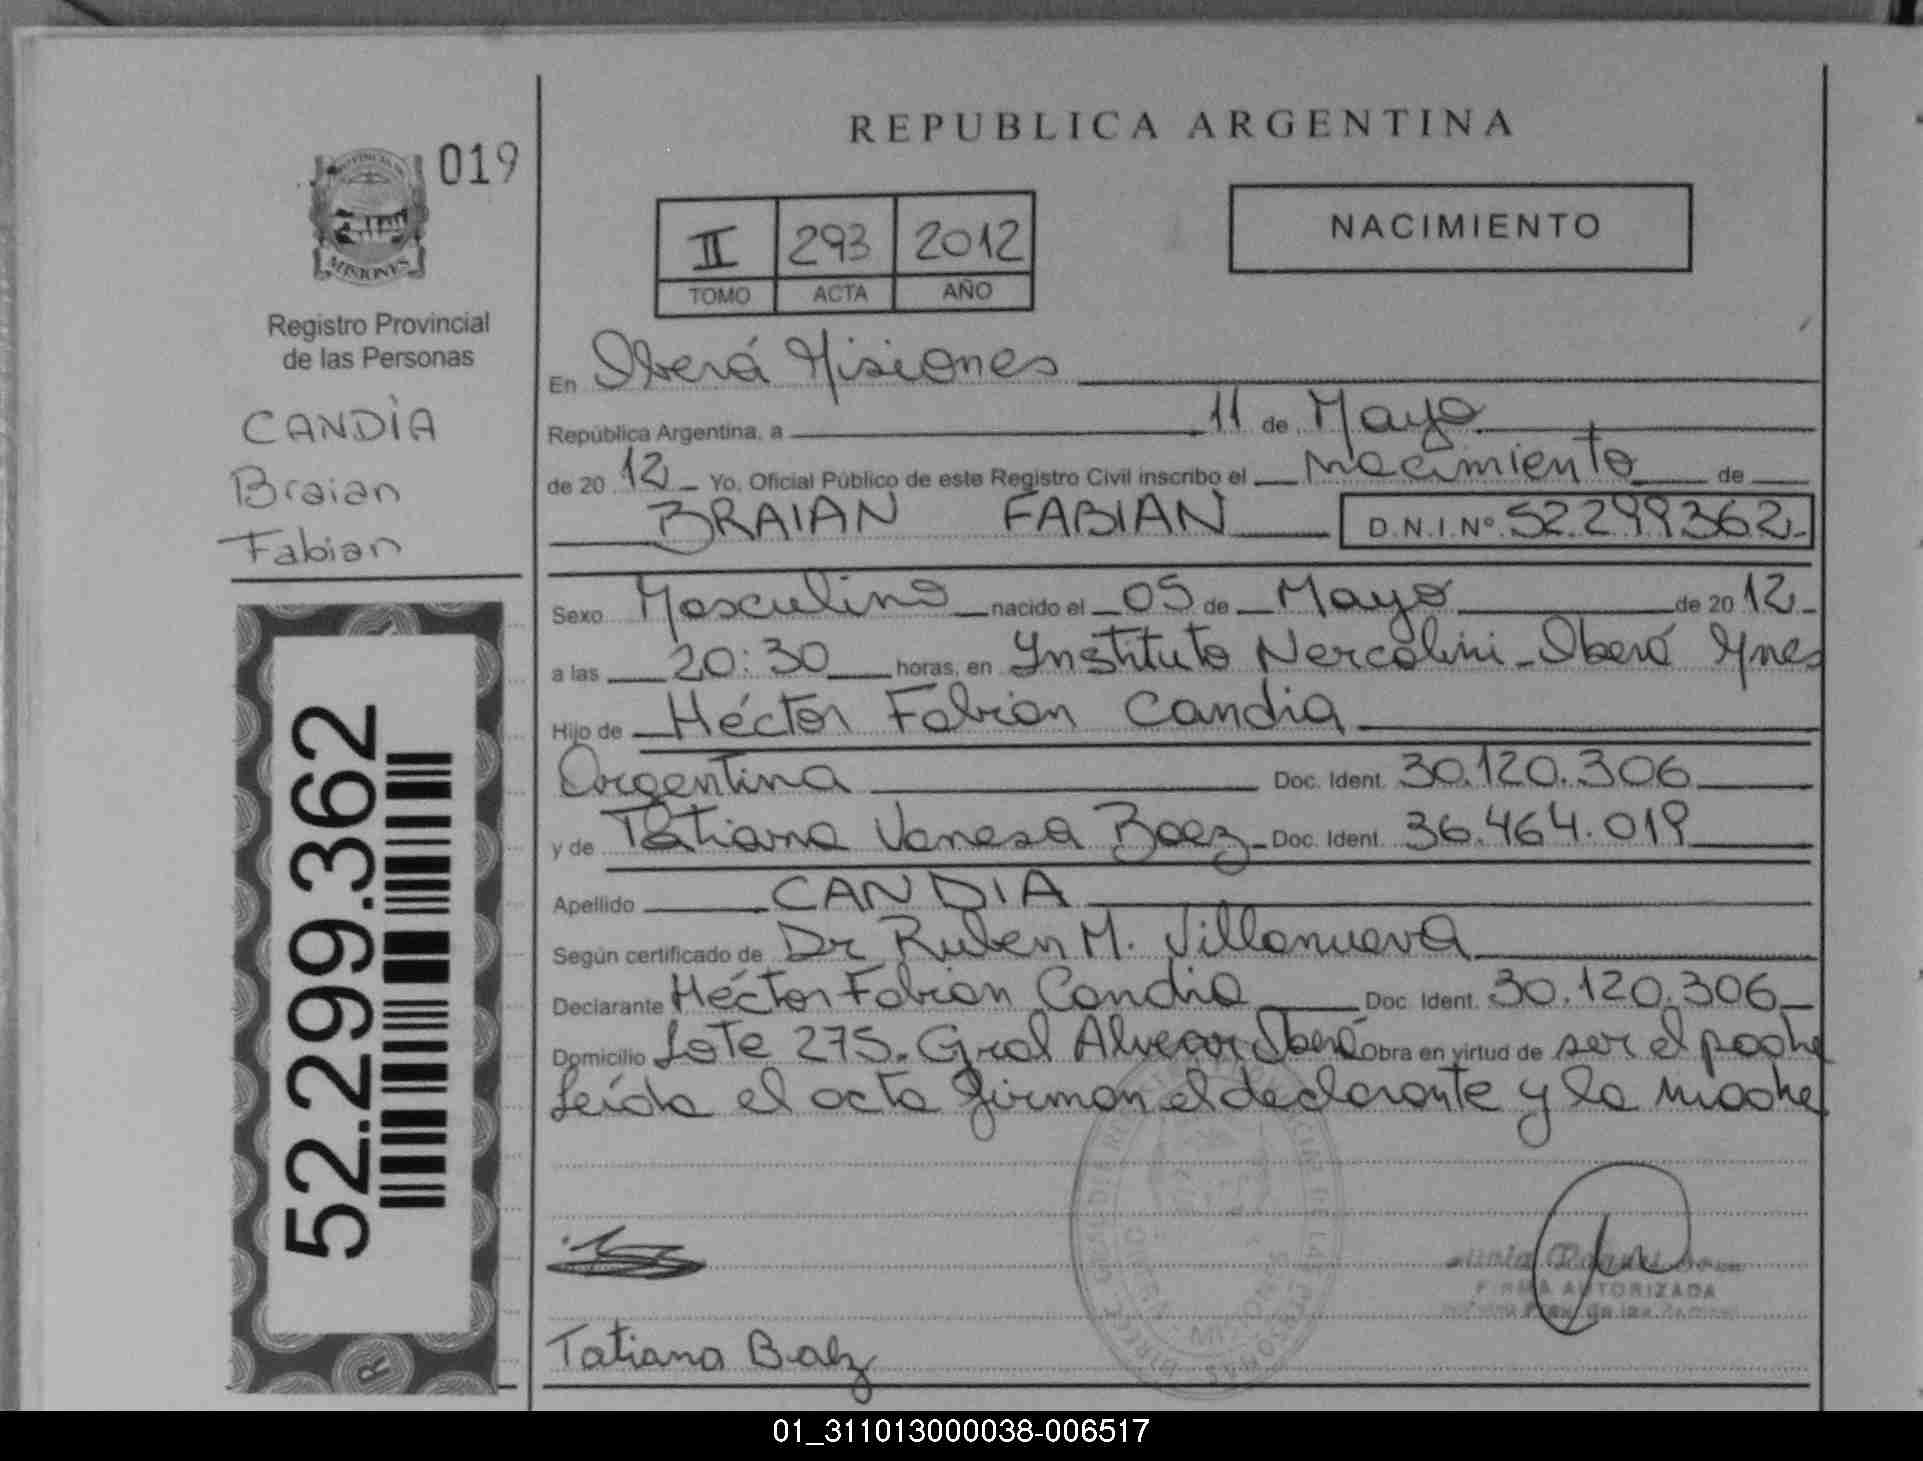 REPUBLICA ARGENTINA
019
NACIMIENTO
II 293 2012
TOMO ACTA AÑO
MISIONES
Registro Provincial
de las Personas
CANDIA
Braian
Fabian
52.299.362
R
En Oberá Misiones
República Argentina, a 11 de Mayo
de 2012 Yo, Oficial Público de este Registro Civil inscribo el Nacimiento de
BRAIAN FABIAN D.N.I.Nº 52.299362
Sexo Masculino nacido el 05 de Mayo de 2012
a las 20:30 horas, en Ynstituto Nercolini - Oberá Mnes
Hijo de Héctor Fabian Candia
Argentina Doc. Ident. 30.120.306
y de Tatiana Vanesa Baez Doc. Ident. 36.464.019
Apellido CANDIA
Según certificado de Dr Ruben M. Villanueva
Declarante Héctor Fabian Candia Doc. Ident. 30.120.306
Domicilio Lote 275. Gral Alvear Oberá Obra en virtud de ser el padre
Leída el acta firman el declarante y la madre
FIRMA AUTORIZADA
Tatiana Baez
01_311013000038-006517